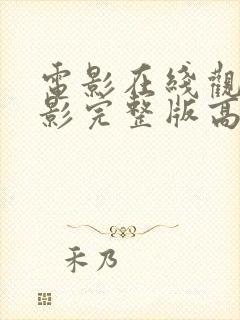 電影在綫觀
影完整版高
禾乃